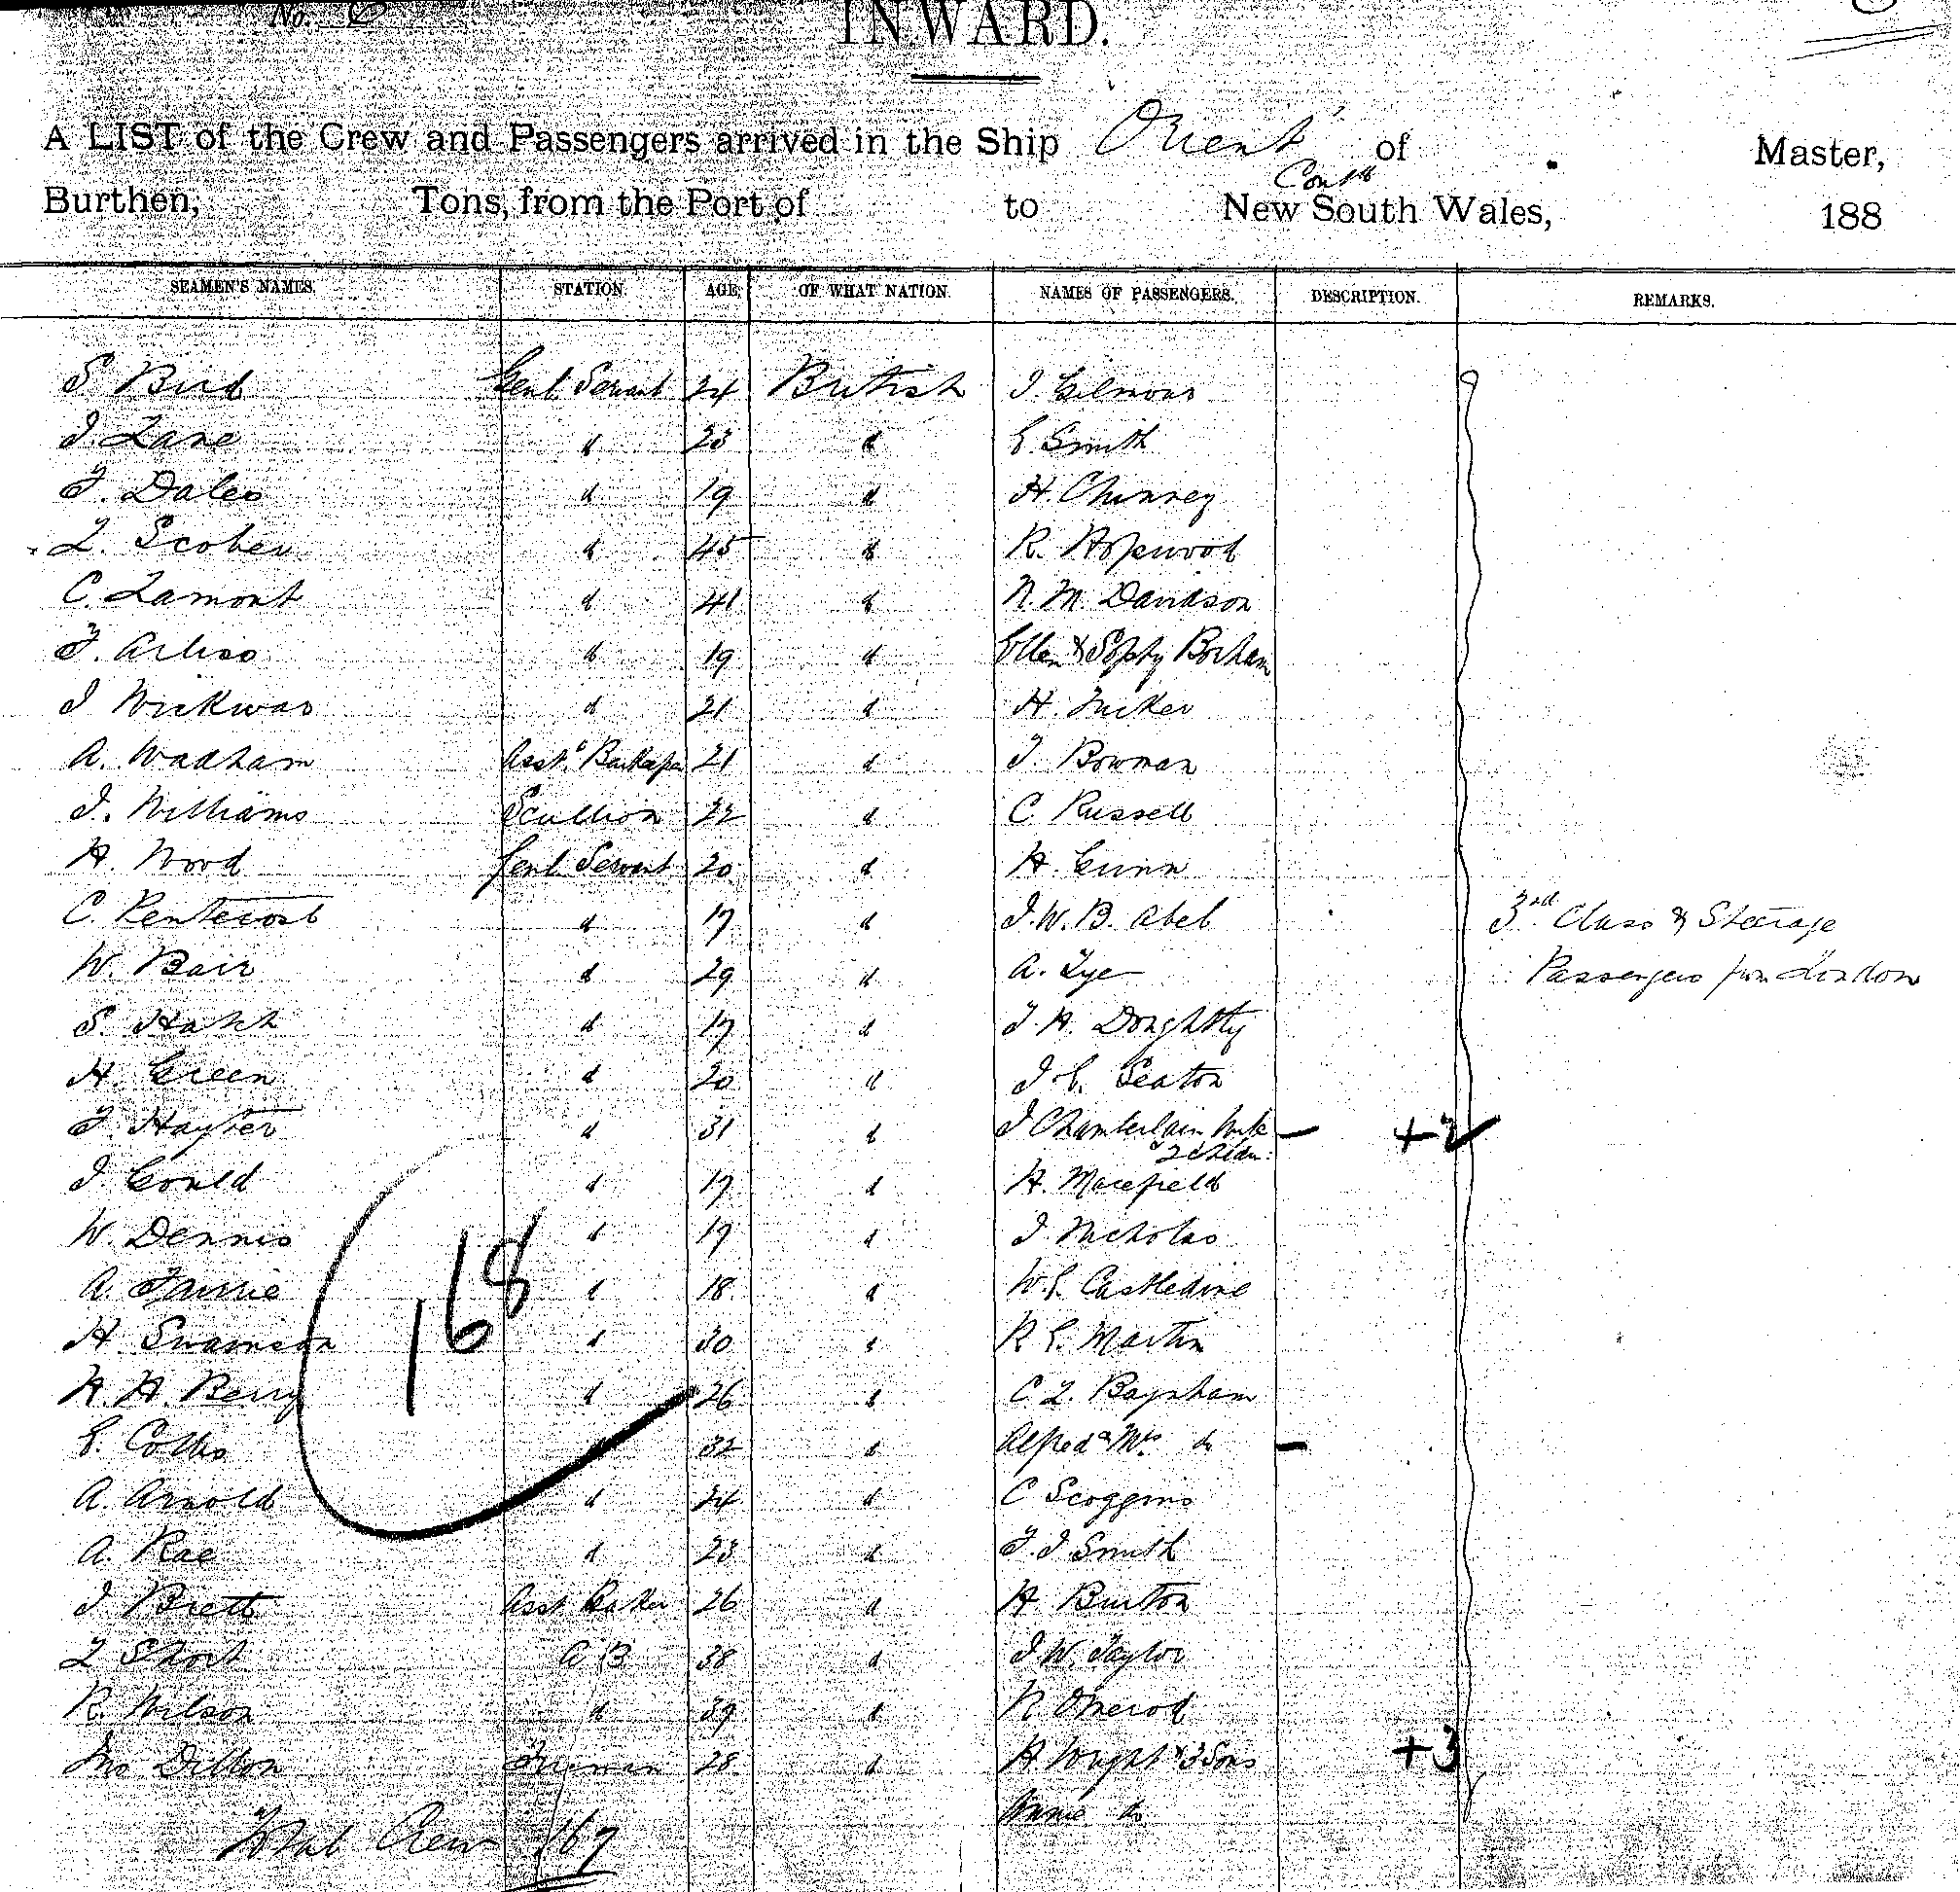 No. 6
INWARD.
A LIST of the Crew and Passengers arrived in the Ship Orient of Master,
Contd
Burthen, Tons, from the Port of to New South Wales, 188
SEAMEN'S NAMES. STATION. AGE. OF WHAT NATION. NAMES OF PASSENGERS. DESCRIPTION. REMARKS.
S. Bird Genl. Servant 24 British J. Gilmour
J. Lane " 23 " E. Smith
F. Dales " 19 " H. Chinney
L. Scober " 45 " R. Hopwood
C. Lamont " 41 " N. M. Davidson
F. Arliss " 19 " Ellen & Borham
J Wickwar " 21 " H. Tucker
A. Wadham Asst. 21 " T. Bowman
J. Williams Scullion 22 " C Russell
H. Wood Genl Servant 20 " H. Gunn
C. Pentecost " 17 " J. W. B. Abel 3rd Class & Steerage
W. Bair " 29 " A. Tye Passengers from London
S. Hatch " 17 " J. H. Doughtty
H. Green " 20 " J. C. Seaton
F. Hayter " 31 " J Chamberlain Wife – +2
& 2 Chldn:
J. Gould " 17 " H. Macefield
W. Dennis " 19 " J. Nicholas
A. " 18 " W. E. Castledine
168
H Swainson " 30 " R E. Martin
H. H. Berry " 26 " C L. Baynham
E. Collis " 32 " Alfred & Mrs do –
A. Arnold " 24 " C Scoggins
A. Rae " 23 " F. J. Smith
J Brett Asst Baker 26 " H Burton
L Short A B 38 " J. W. Taylor
R. Wilson " 39 " R Omerod
Jno Dillon Fireman 28 " H. Wright & 3 Sons +3
Annie do
Total Crew 167